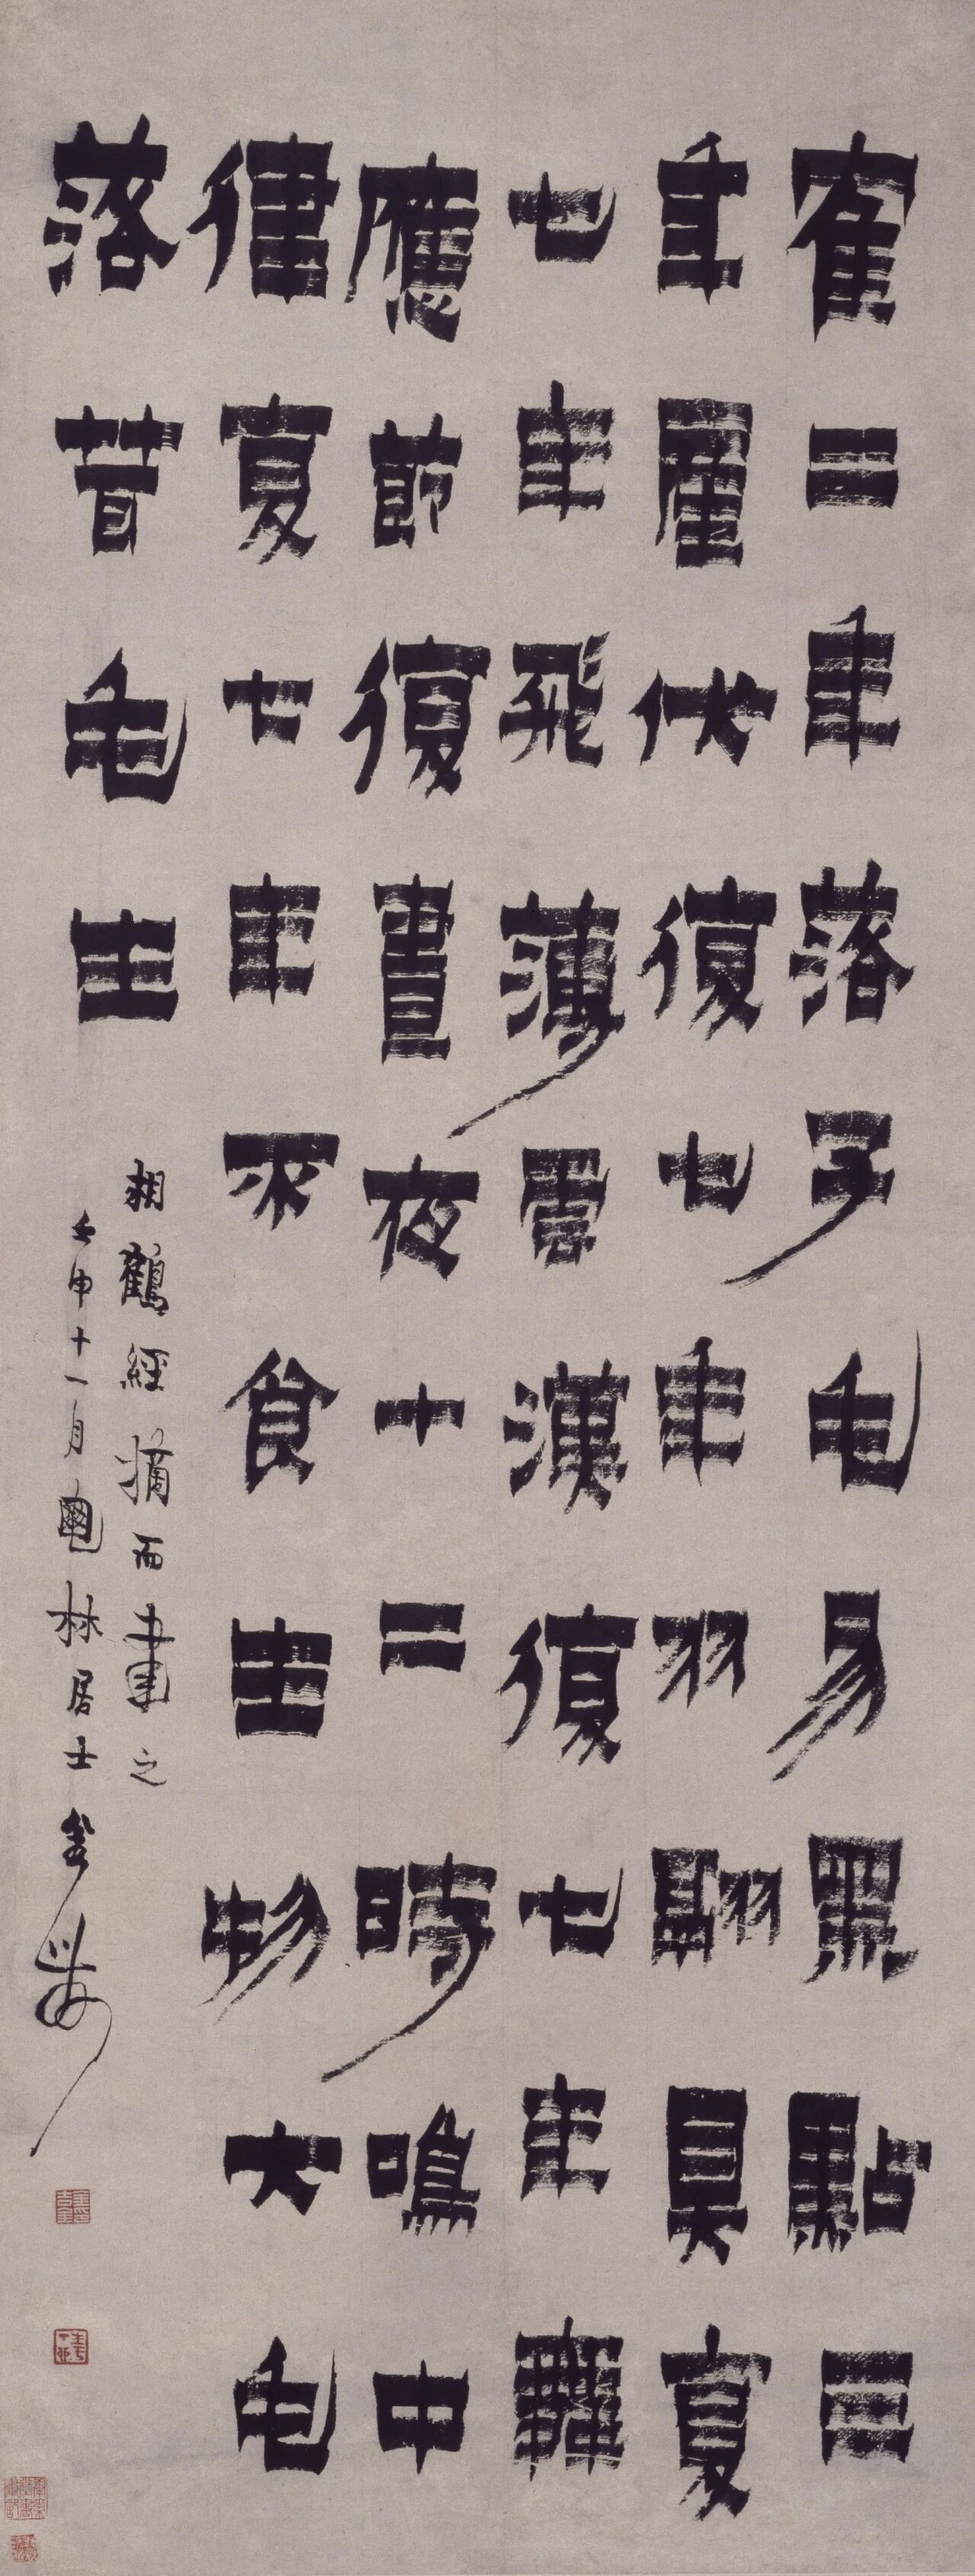 隺二年落子毛易黑點三
年產伏復七年羽翮具复
七年飛薄雲漢復七年舞
應節復晝夜十二時鳴中
律复七年不食生物大毛
落茸毛生
相鶴經摘而書之
壬申十一月龜林居士